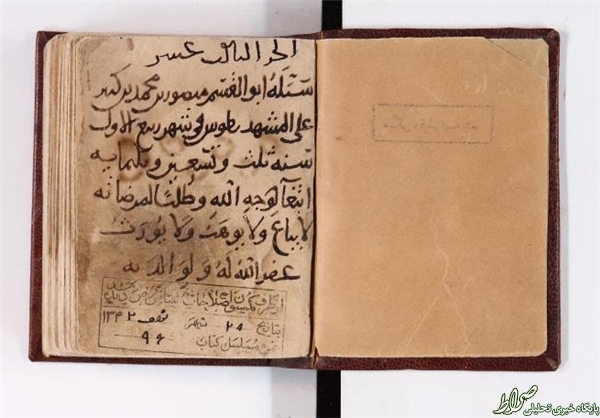 الجز الثالث عشر
سبله ابو القسم منصور بن محمد بن كثير
على المشهد بطوس في شهر ربيع الاول
سنه ثلث وتسعين وثلثمايه
ابتغآ لوجه الله وطلبا لمرضاته
لا يباع ولا يوهب ولا يورث
غفر الله له ولوالديه
از طرف کمسیون
بتاریخ شهر ۱۳۴۲
نمره مسلسل کتاب ۹۶
صراط
پایگاه خبری تحلیلی